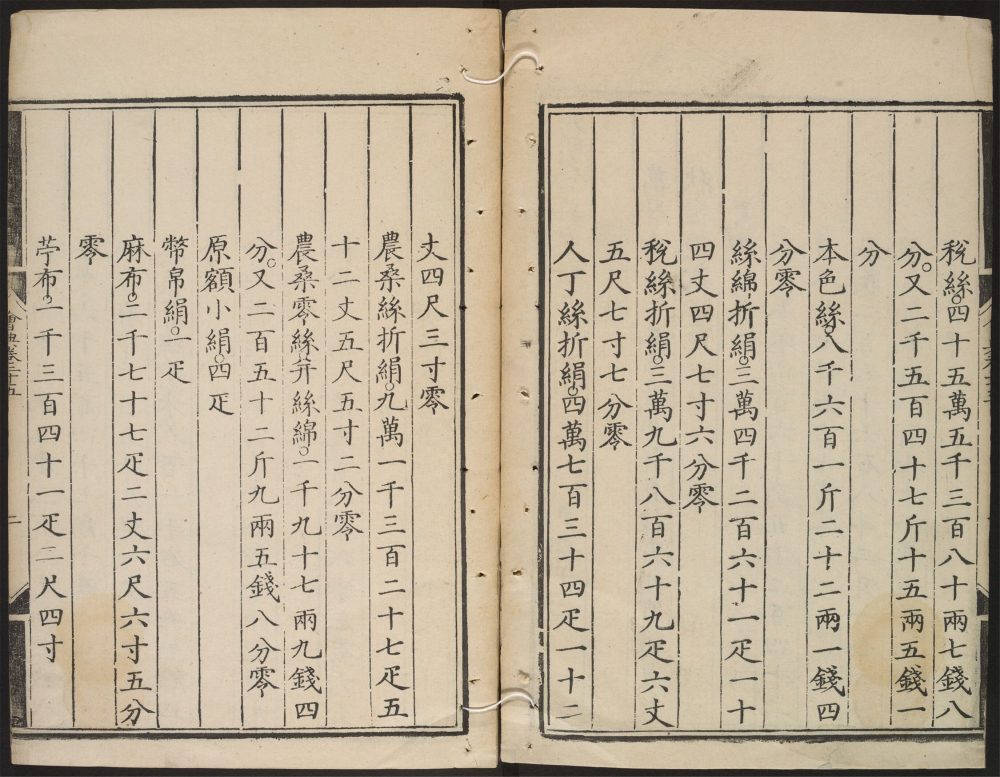 稅絲。四十五萬五千三百八十兩七錢八
分。又二千五百四十七斤十五兩五錢一
分
本色絲。八千六百一斤二十二兩一錢四
分零
絲綿折絹。三萬四千二百六十一疋一十
四丈四尺七寸六分零
稅絲折絹。三萬九千八百六十九疋六丈
五尺七寸七分零
人丁絲折絹。四萬七百三十四疋一十二
丈四尺三寸零
農桑絲折絹。九萬一千三百二十七疋五
十二丈五尺五寸二分零
農桑零絲并絲綿。一千九十七兩九錢四
分。又二百五十二斤九兩五錢八分零
原額小絹。四疋
幣帛絹。一疋
麻布。二千七十七疋二丈六尺六寸五分
零
苧布。一千三百四十一疋二尺四寸
會典卷二十五
二